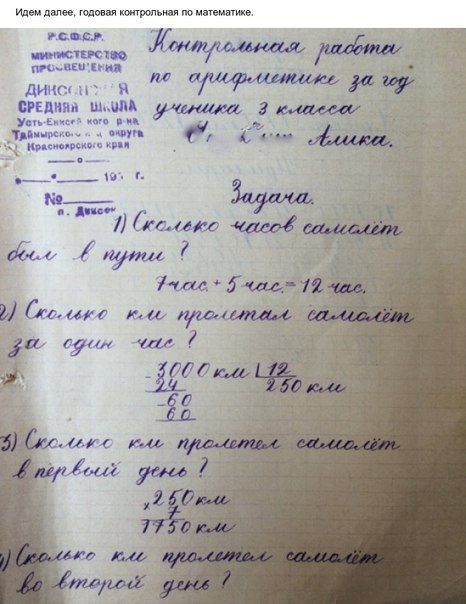 Идем далее, годовая контрольная по математике.
Р.С.Ф.С.Р.
МИНИСТЕРСТВО
ПРОСВЕЩЕНИЯ
ДИКСОНСКАЯ
СРЕДНЯЯ ШКОЛА
Усть-Енисейского р-на
Таймырского округа
Красноярского края
195 г.
№
п. Диксон
Контрольная работа
по арифметике за год
ученика 3 класса
Алика.
Задача.
1) Сколько часов самолёт
был в пути?
7 час. + 5 час. = 12 час.
2) Сколько км пролетал самолёт
за один час?
- 3000 км 12
24 250 км
- 60
60
3) Сколько км пролетел самолёт
в первый день?
x 250 км
7
1750 км
4) Сколько км пролетел самолёт
во второй день?